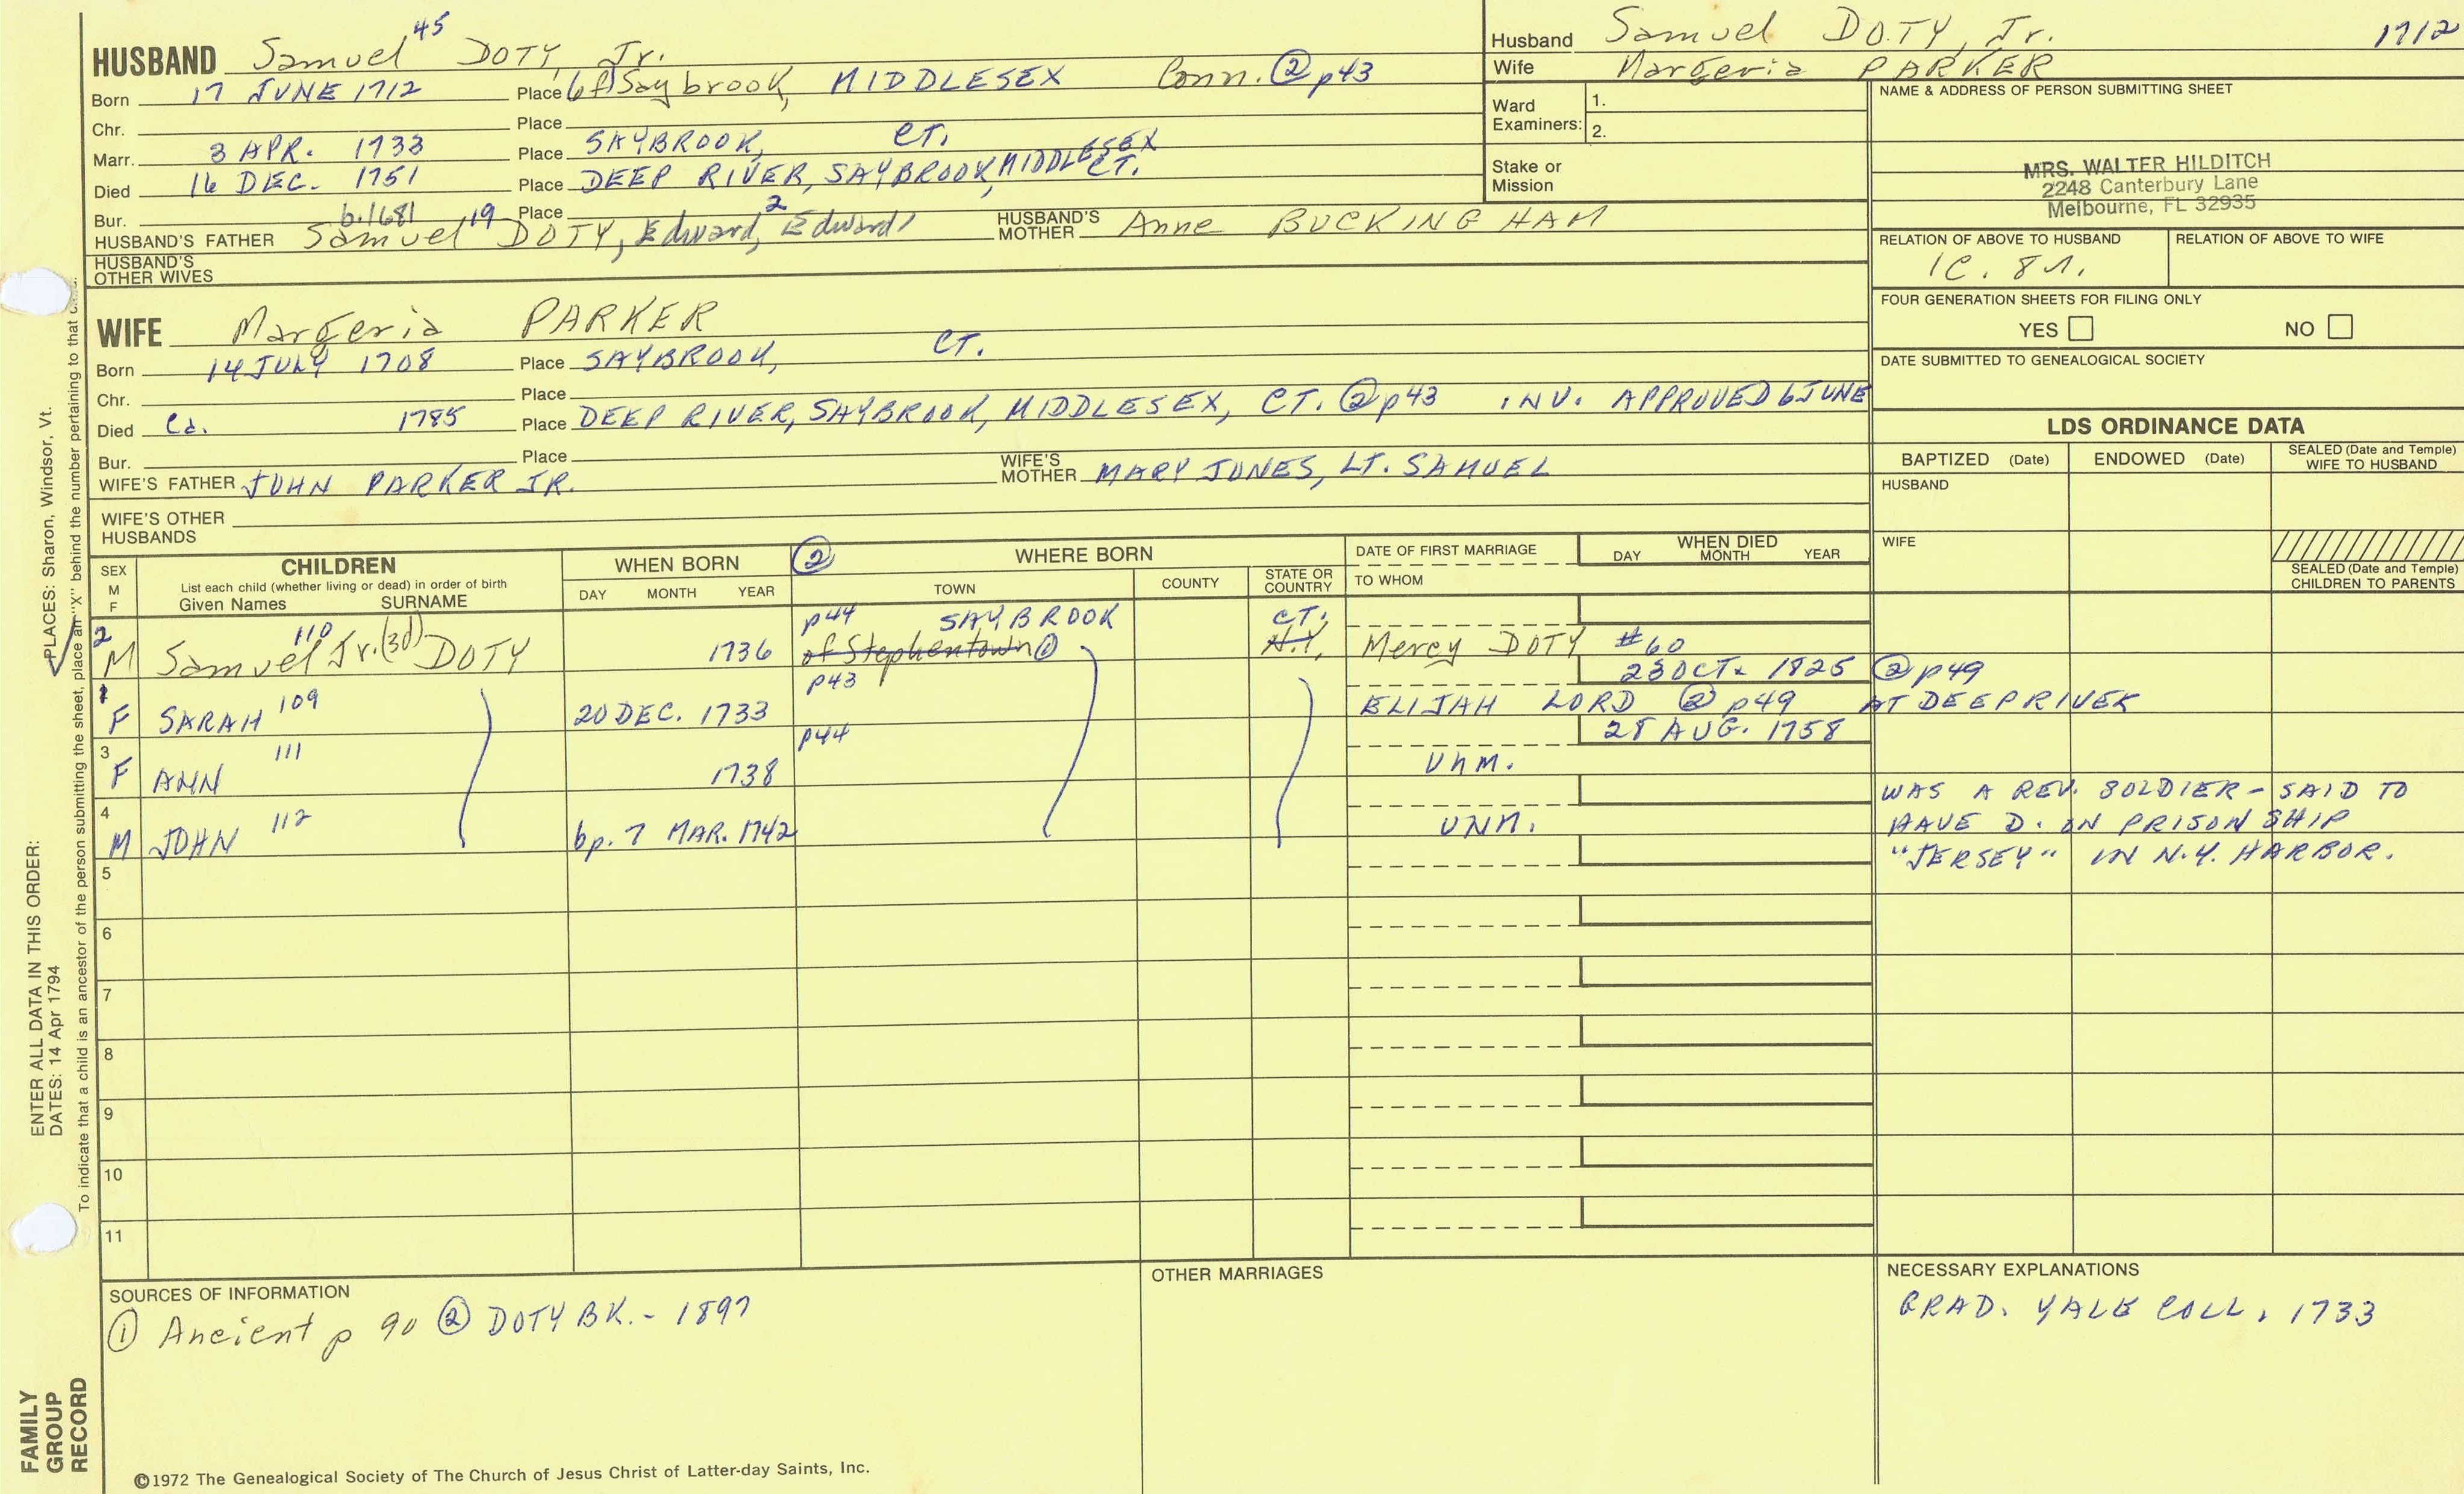 HUSBAND Samuel 45 DOTY, Jr.
Born 17 JUNE 1712 Place of Saybrook, MIDDLESEX Conn. ② p43
Chr. Place
Marr. 3 APR. 1733 Place SAYBROOK, CT.
Died 16 DEC. 1751 Place DEEP RIVER, SAYBROOK, MIDDLESEX CT.
Bur. Place
b. 1681
HUSBAND'S FATHER Samuel 19 DOTY, Edward, 2 Edward 1 HUSBAND'S MOTHER Anne BUCKINGHAM
HUSBAND'S OTHER WIVES
WIFE Margeria PARKER
Born 14 JULY 1708 Place SAYBROOK, CT.
Chr. Place
Died Ca. 1785 Place DEEP RIVER, SAYBROOK, MIDDLESEX, CT. ② p43 INV. APPROVED 6 JUNE
Bur. Place
WIFE'S FATHER JOHN PARKER JR. WIFE'S MOTHER MARY JONES, LT. SAMUEL
WIFE'S OTHER HUSBANDS
Husband Samuel DOTY, Jr. 1712
Wife Margeria PARKER
Ward Examiners: 1.
2.
Stake or Mission
NAME & ADDRESS OF PERSON SUBMITTING SHEET
MRS. WALTER HILDITCH
2248 Canterbury Lane
Melbourne, FL 32935
RELATION OF ABOVE TO HUSBAND RELATION OF ABOVE TO WIFE
1C. 8r.
FOUR GENERATION SHEETS FOR FILING ONLY
YES NO
DATE SUBMITTED TO GENEALOGICAL SOCIETY
LDS ORDINANCE DATA
BAPTIZED (Date) ENDOWED (Date) SEALED (Date and Temple) WIFE TO HUSBAND
HUSBAND
WIFE
SEALED (Date and Temple) CHILDREN TO PARENTS
SEX M F
CHILDREN
List each child (whether living or dead) in order of birth
Given Names SURNAME
WHEN BORN
DAY MONTH YEAR
② WHERE BORN
TOWN COUNTY STATE OR COUNTRY
DATE OF FIRST MARRIAGE
TO WHOM
WHEN DIED
DAY MONTH YEAR
2 M Samuel Jr. (3d) 110 DOTY 1736 p44 SAYBROOK CT.
of Stephentown ① N.Y. Mercy DOTY #60
23 OCT. 1825 ② p49
1 F SARAH 109 20 DEC. 1733 p43 ELIJAH LORD ② p49 AT DEEP RIVER
28 AUG. 1758
3 F ANN 111 1738 p44 Unm.
4 M JOHN 112 bp. 7 MAR. 1742 UNM.
WAS A REV. SOLDIER - SAID TO
HAVE D. ON PRISON SHIP
"JERSEY" IN N.Y. HARBOR.
5
6
7
8
9
10
11
SOURCES OF INFORMATION
① Ancient p 90 ② DOTY BK. - 1897
OTHER MARRIAGES
NECESSARY EXPLANATIONS
GRAD. YALE COLL. 1733
©1972 The Genealogical Society of The Church of Jesus Christ of Latter-day Saints, Inc.
FAMILY GROUP RECORD
ENTER ALL DATA IN THIS ORDER:
DATES: 14 Apr 1794
PLACES: Sharon, Windsor, Vt.
To indicate that a child is an ancestor of the person submitting the sheet, place an "X" behind the number pertaining to that